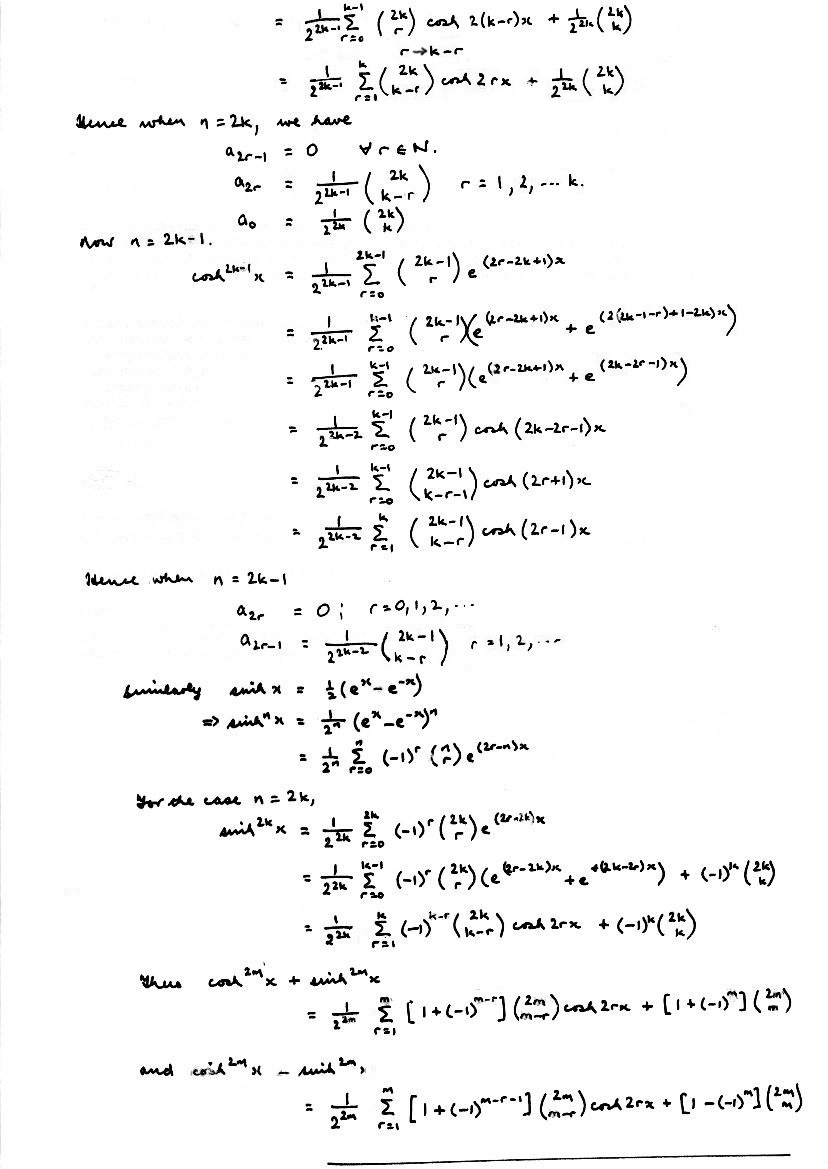 = 1/2^{2k-1} Σ_{r=0}^{k-1} (2k r) cosh 2(k-r)x + 1/2^{2k} (2k k)
r→k-r
= 1/2^{2k-1} Σ_{r=1}^{k} (2k k-r) cosh 2rx + 1/2^{2k} (2k k)
Hence when n = 2k, we have
a_{2r-1} = 0 ∀ r ∈ N.
a_{2r} = 1/2^{2k-1} (2k k-r) r = 1, 2, ... k.
a_0 = 1/2^{2k} (2k k)
Now n = 2k-1.
cosh^{2k-1} x = 1/2^{2k-1} Σ_{r=0}^{2k-1} (2k-1 r) e^{(2r-2k+1)x}
= 1/2^{2k-1} Σ_{r=0}^{k-1} (2k-1 r)(e^{(2r-2k+1)x} + e^{(2(2k-1-r)+1-2k)x})
= 1/2^{2k-1} Σ_{r=0}^{k-1} (2k-1 r)(e^{(2r-2k+1)x} + e^{(2k-2r-1)x})
= 1/2^{2k-2} Σ_{r=0}^{k-1} (2k-1 r) cosh (2k-2r-1)x
= 1/2^{2k-2} Σ_{r=0}^{k-1} (2k-1 k-r-1) cosh (2r+1)x
= 1/2^{2k-2} Σ_{r=1}^{k} (2k-1 k-r) cosh (2r-1)x
Hence when n = 2k-1
a_{2r} = 0; r=0,1,2,...
a_{2r-1} = 1/2^{2k-2} (2k-1 k-r) r=1,2,...
Similarly sinh x = 1/2 (e^x - e^{-x})
=> sinh^n x = 1/2^n (e^x - e^{-x})^n
= 1/2^n Σ_{r=0}^{n} (-1)^r (n r) e^{(2r-n)x}
For the case n = 2k,
sinh^{2k} x = 1/2^{2k} Σ_{r=0}^{2k} (-1)^r (2k r) e^{(2r-2k)x}
= 1/2^{2k} Σ_{r=0}^{k-1} (-1)^r (2k r)(e^{(2r-2k)x} + e^{+(2k-2r)x}) + (-1)^k (2k k)
= 1/2^{2k} Σ_{r=1}^{k} (-1)^{k-r} (2k k-r) cosh 2rx + (-1)^k (2k k)
Thus cosh^{2m} x + sinh^{2m} x
= 1/2^{2m} Σ_{r=1}^{m} [1+(-1)^{m-r}] (2m m-r) cosh 2rx + [1+(-1)^m] (2m m)
and cosh^{2m} x - sinh^{2m},
= 1/2^{2m} Σ_{r=1}^{m} [1+(-1)^{m-r-1}] (2m m-r) cosh 2rx + [1-(-1)^m] (2m m)